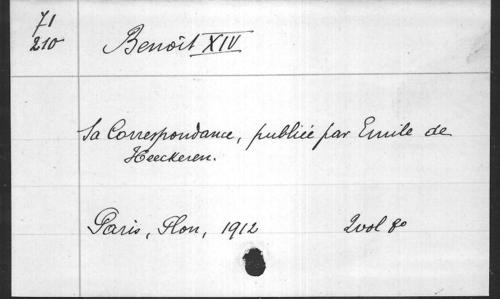 71
210
Benoît XIV
Sa Correspondance, publiée par Emile de
Heeckeren.
Paris, Plon, 1912 2 vol 8o